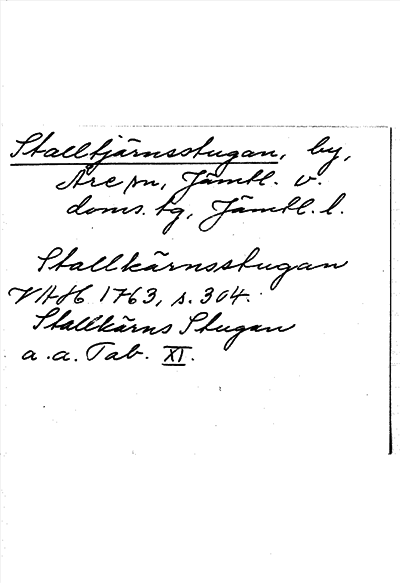 Stalltjärnsstugan, by,
Åre sn, Jämtl. v.
doms. tg, Jämtl. l.
Stallkärnsstugan
VAH 1763, s. 304.
Stallkärns Stugan
a. a. Tab. XI.